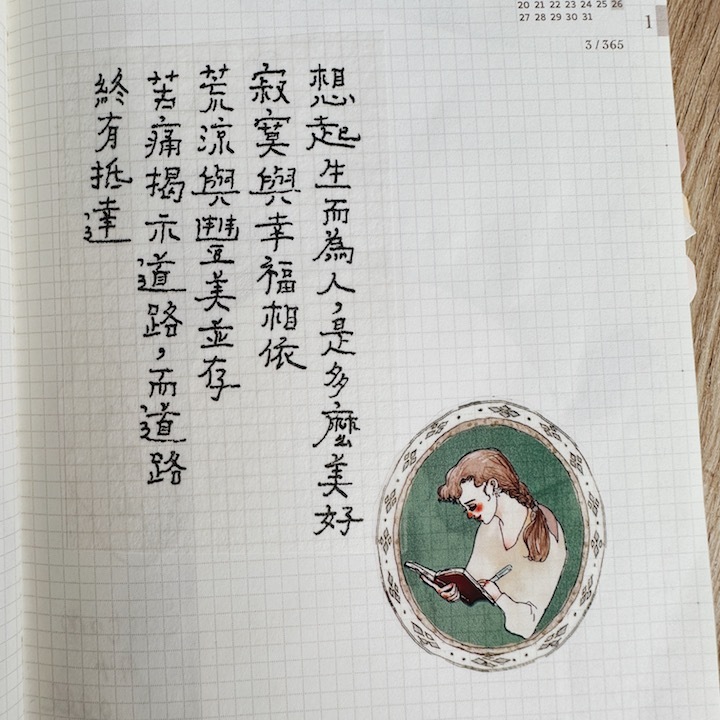 20 21 22 23 24 25 26
27 28 29 30 31
1
3 / 365
想起生而為人，是多麼美好
寂寞與幸福相依
荒涼與豐美並存
苦痛揭示道路，而道路
終有抵達